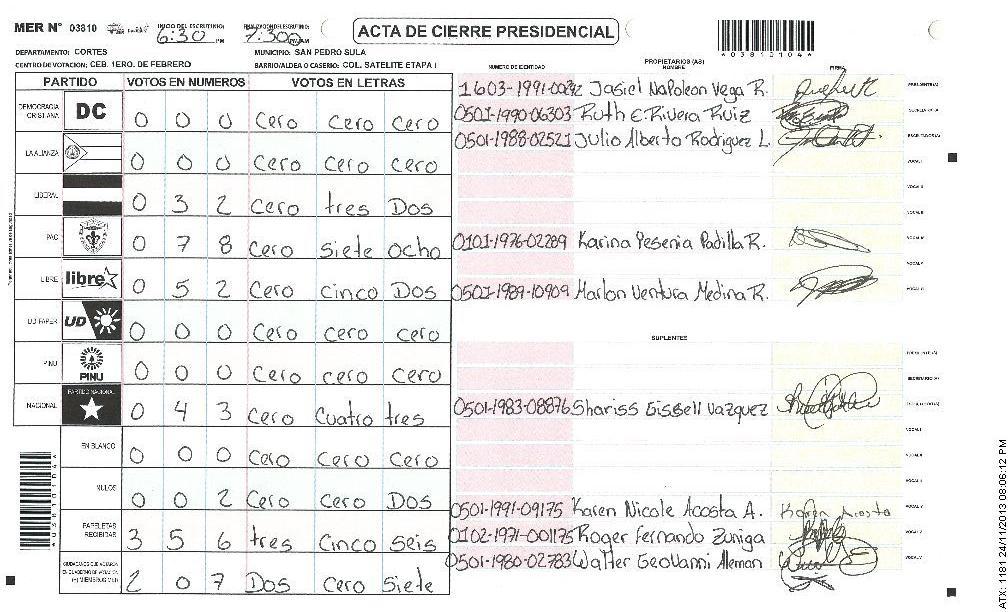 MER N° 03810 INICIO DEL ESCRUTINIO: 6:30 PM 7:300 PM ACTA DE CIERRE PRESIDENCIAL *03810104*
DEPARTAMENTO: CORTES MUNICIPIO: SAN PEDRO SULA
CENTRO DE VOTACION: CEB. 1ERO. DE FEBRERO BARRIO/ALDEA O CASERIO: COL. SATELITE ETAPA I
NUMERO DE IDENTIDAD PROPIETARIOS (AS) NOMBRE FIRMA
PARTIDO VOTOS EN NUMEROS VOTOS EN LETRAS
DEMOCRACIA CRISTIANA DC 0 0 0 Cero Cero Cero
LA ALIANZA 0 0 0 Cero Cero Cero
LIBERAL 0 3 2 Cero tres Dos
PAC 0 7 8 Cero Siete ocho
LIBRE libre 0 5 2 Cero Cinco Dos
UD FAPER UD 0 0 0 Cero Cero cero
PINU PINU 0 0 0 Cero cero cero
NACIONAL PARTIDO NACIONAL 0 4 3 Cero Cuatro tres
EN BLANCO 0 0 0 Cero Cero Cero
NULOS 0 0 2 Cero Cero Dos
PAPELETAS RECIBIDAS 3 5 6 tres Cinco Seis
CIUDADANOS QUE VOTARON 2 0 7 Dos Cero Siete
Jasiel Napoleon Vega R. PRESIDENTE(A)
0501-1990-06303 Ruth E. Rivera Ruiz
0501-1988-02521 Julio Alberto Rodriguez L.
0101-1976-02289 Karina Yesenia Padilla R.
0501-1989-10909 Marlon Ventura Medina R.
SUPLENTES
0501-1983-08876 Shariss Gissell Vazquez
0501-1991-09175 Karen Nicole Acosta A. Karen Acosta
0102-1971-001175 Roger Fernando Zuniga
0501-1980-02783 Walter Geovanni Aleman
ATX: 1181 24/11/2013 08:06:12 PM